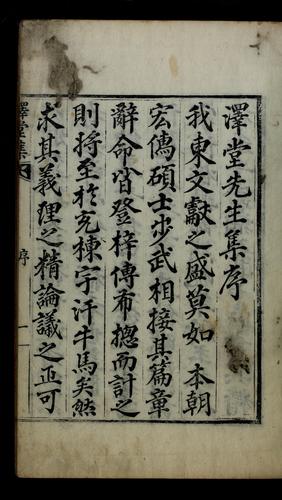 澤堂先生集序
我東文獻之盛莫如　本朝
宏儁碩士步武相接其篇章
辭命皆登梓傳布揔而計之
則將至於充棟宇汗牛馬矣然
求其義理之精論議之正可
澤堂集
序
一